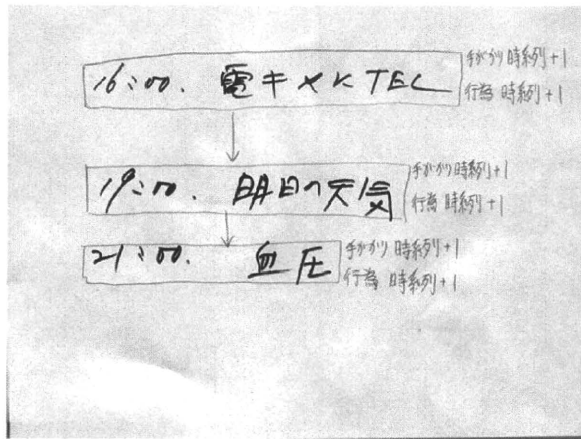 16:00. 電キメに TEL
手がかり 時系列+1
行為 時系列+1
19:00. 明日の天気
手がかり 時系列+1
行為 時系列+1
21:00. 血圧
手がかり 時系列+1
行為 時系列+1